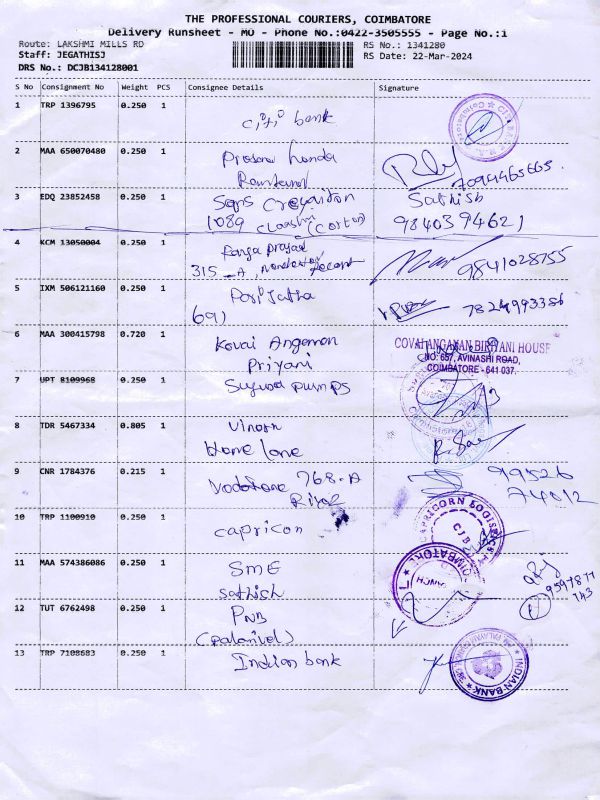 THE PROFESSIONAL COURIERS, COIMBATORE
Delivery Runsheet - MO - Phone No.:0422-3505555 - Page No.:1
Route: LAKSHMI MILLS RD
RS No.: 1341280
Staff: JEGATHISJ
RS Date: 22-Mar-2024
DRS No.: DCJB134128001
S No Consignment No Weight PCS Consignee Details Signature
1 TRP 1396795 0.250 1 citi bank
2 MAA 650070480 0.250 1 Prosana honda
7094465665.
3 EDQ 23852458 0.250 1 Sathish
1089 (Corton) 9840394621
4 KCM 13050004 0.250 1
315 - A, 9841028755
5 IXM 506121160 0.250 1 7824993386
69)
6 MAA 300415798 0.720 1 Kovai Angannan
COVAI ANGANAN BIRIYANI HOUSE
Priyani
NO: 657, AVINASHI ROAD,
COIMBATORE - 641 037.
7 UPT 8109968 0.250 1 Suguna pumps
8 TDR 5467334 0.805 1
Home lone
9 CNR 1784376 0.215 1 Vodafone 768-A 99526
74012
10 TRP 1100910 0.250 1 capricon
CAPRICORN LOGISTICS
CJB
11 MAA 574386086 0.250 1 SME
sathish
12 TUT 6762498 0.250 1 PNB
(palanivel)
13 TRP 7108683 0.250 1 Indian bank
INDIAN BANK